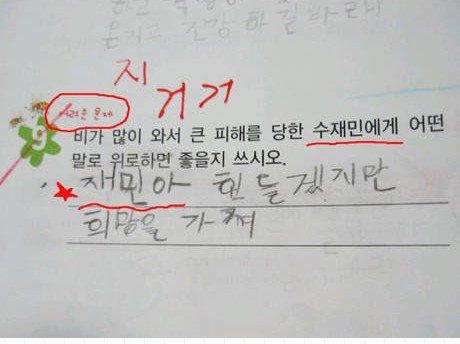 은지고 건강하길바래
지
거거
어려운 문제
9
비가 많이 와서 큰 피해를 당한 수재민에게 어떤
말로 위로하면 좋을지 쓰시오.
재민아 힘들겠지만
희망을 가져